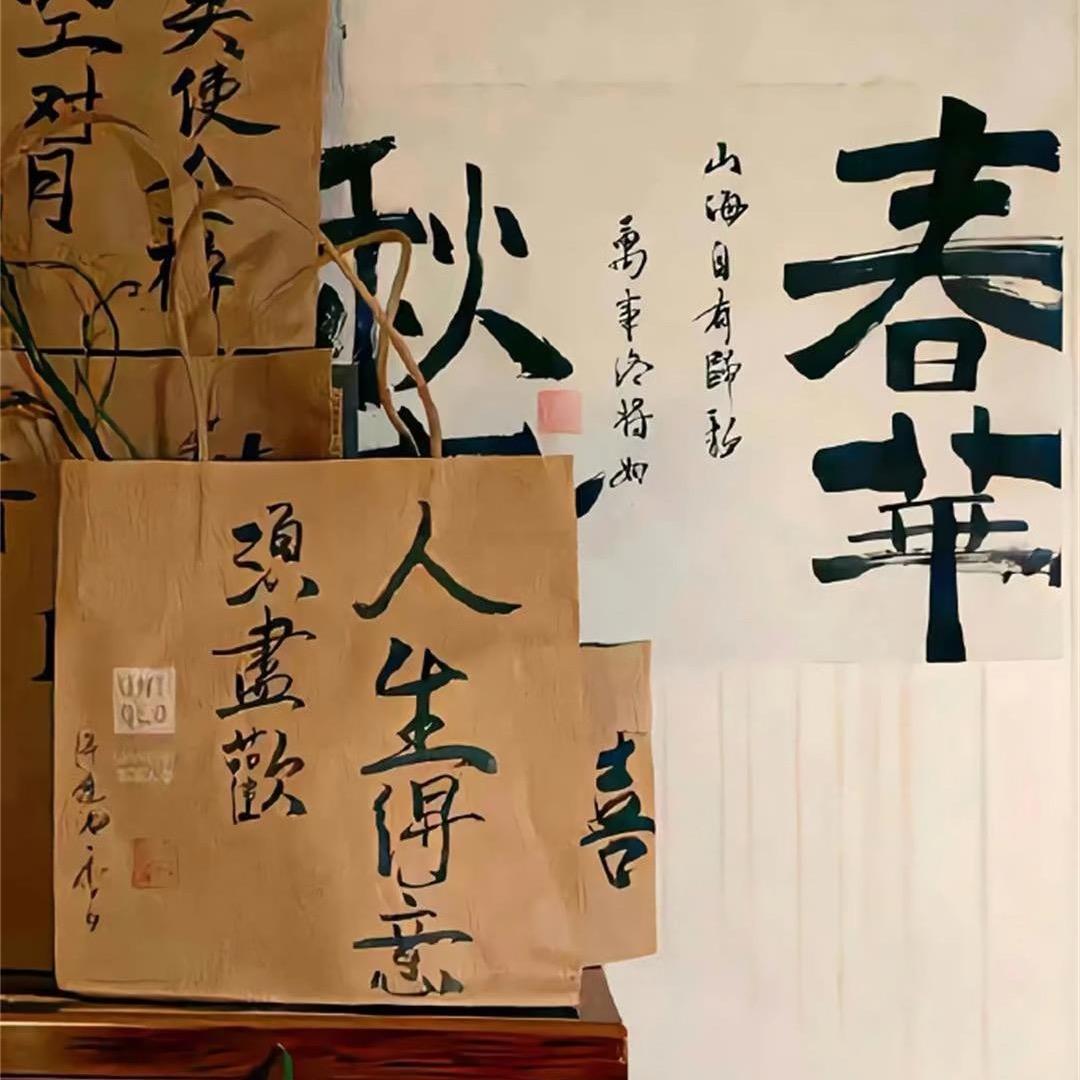 春華
山海自有歸期
萬事终将如
秋
莫使金樽
空对月
人生得意
須盡歡
喜